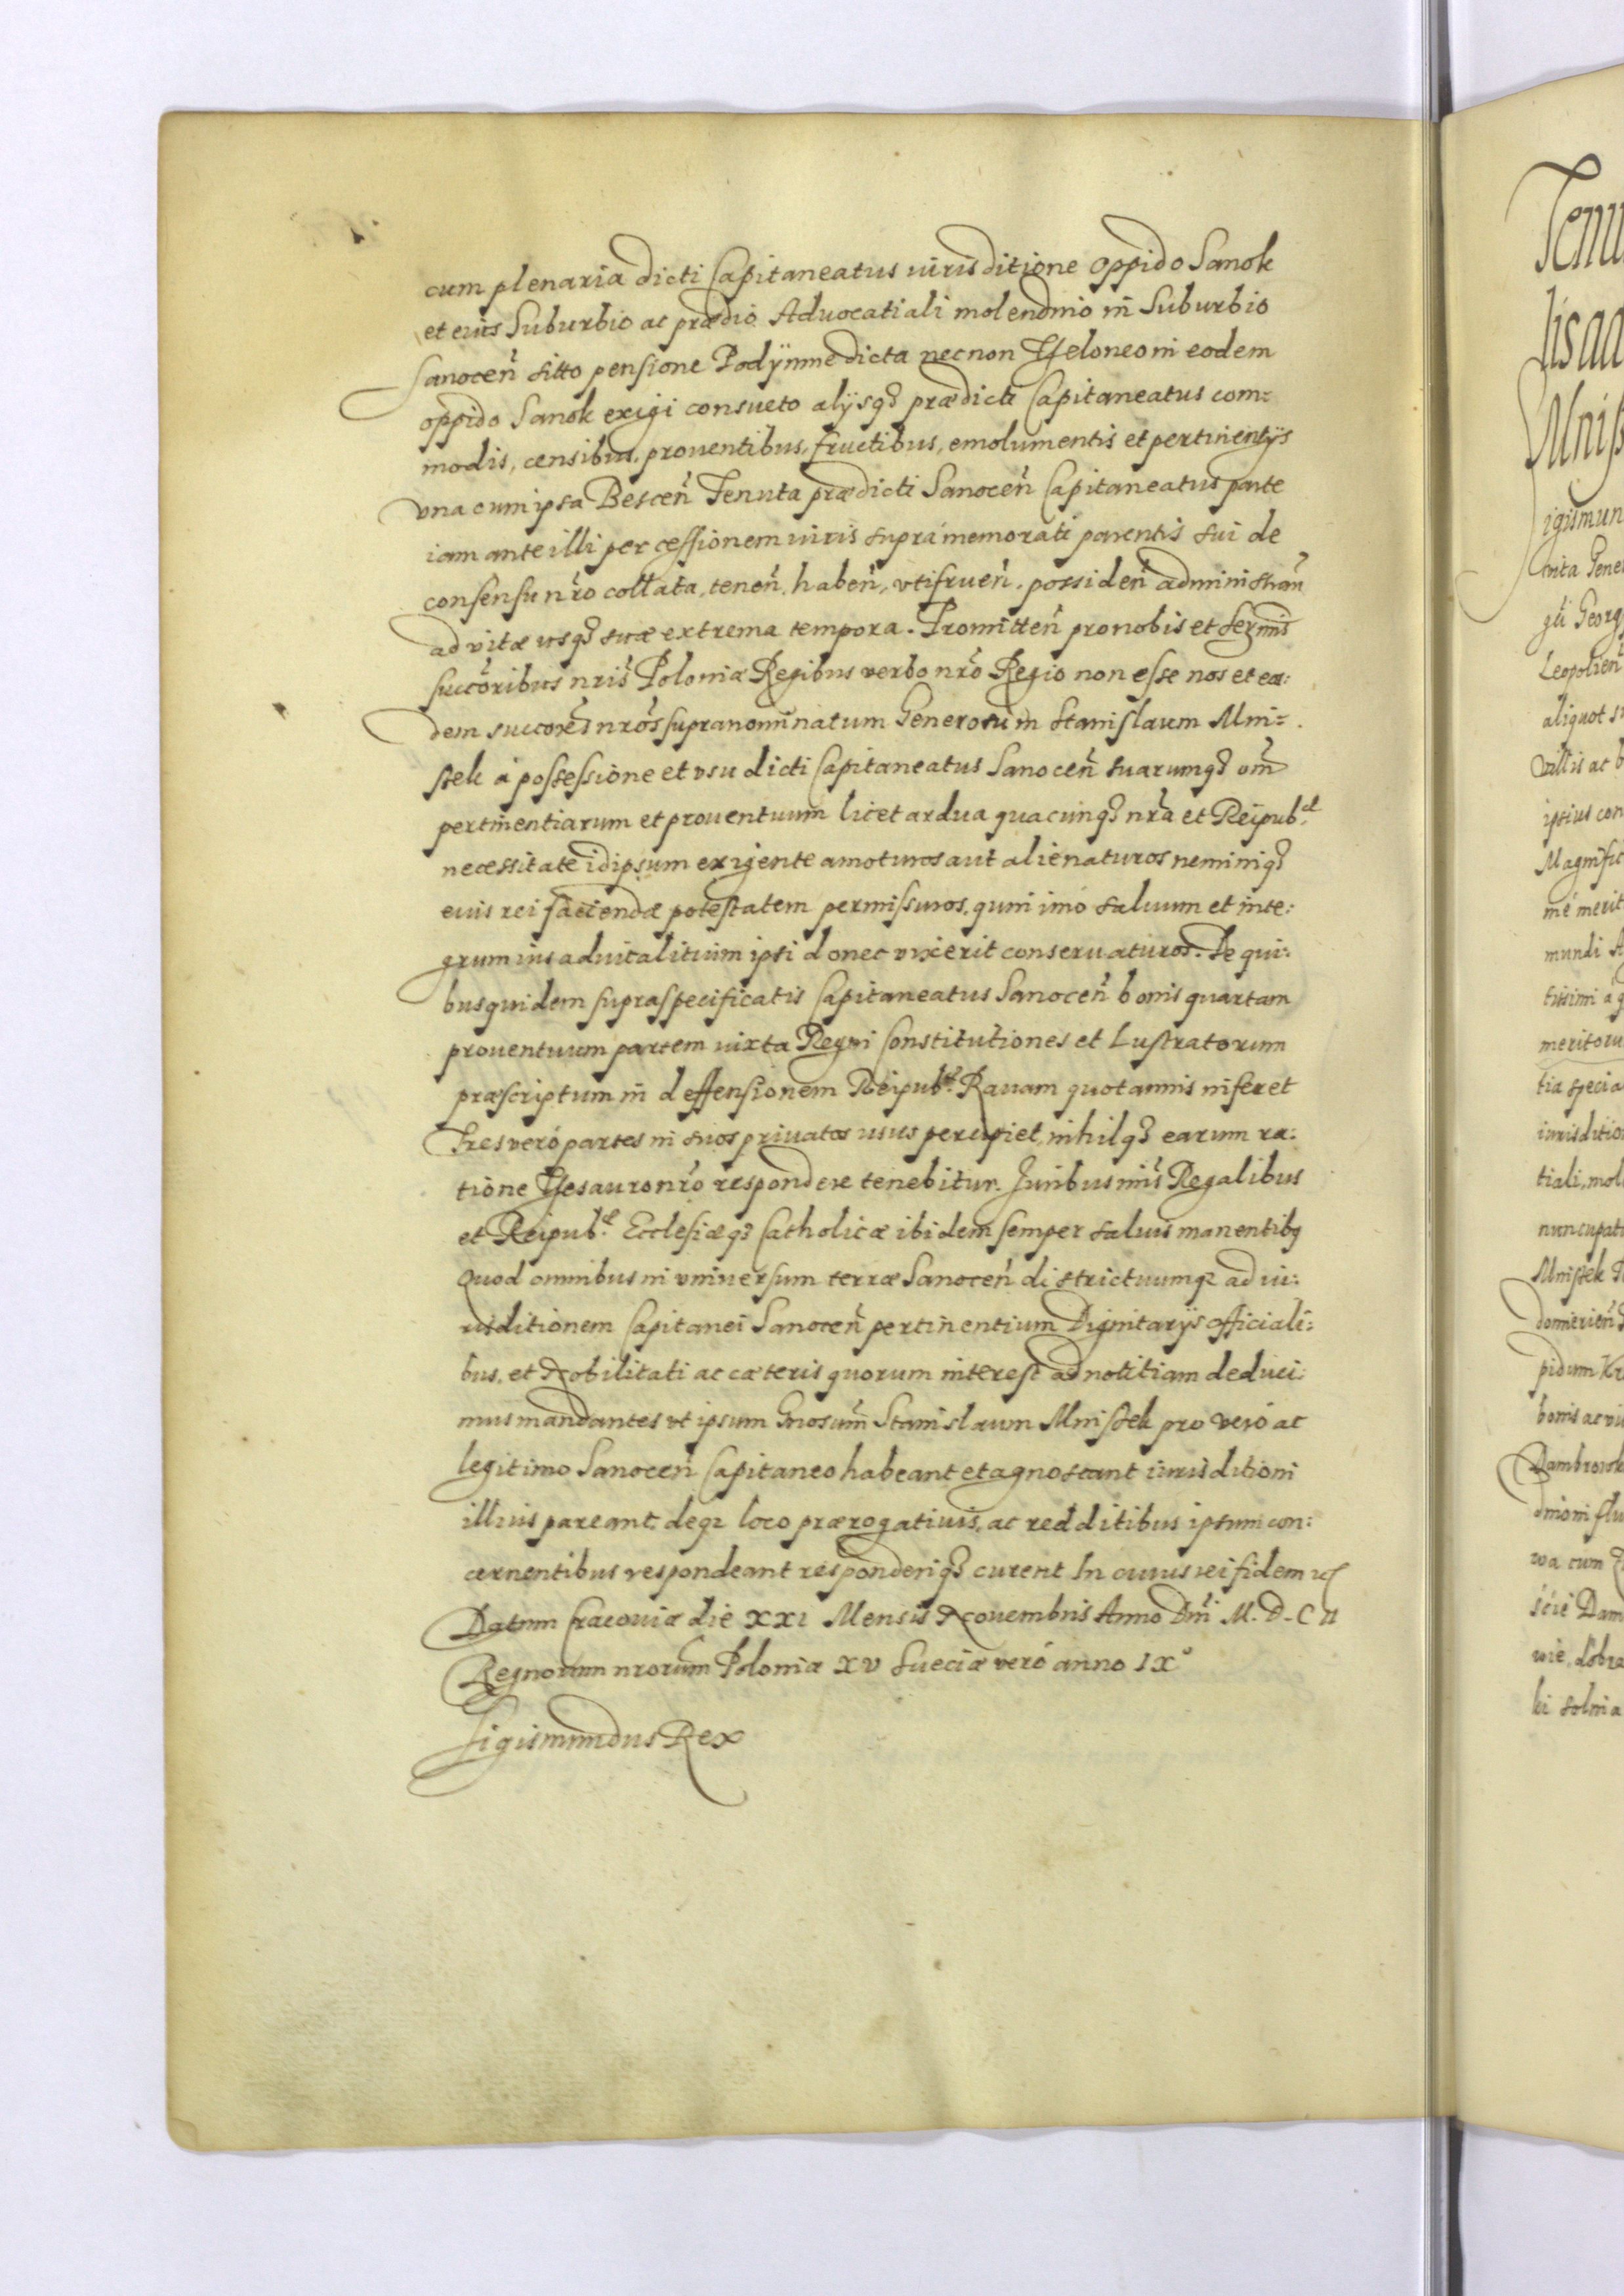 cum plenaria dicti Capitaneatus iurisditione oppido Sanok
et eius Suburbio ac prædio Advocatiali molendino in Suburbio
Sanocen̄ sitto pensione Podÿmne dicta necnon Theloneo in eodem
oppido Sanok exigi consueto alÿsqȝ prædicti Capitaneatus com=
modis, censibus, prouentibus, fructibus, emolumentis et pertinentÿs
vna cum ipsa Bescen̄ Tenuta prædicti Sanocen̄ Capitaneatus parte
iam ante illi per cessionem iuris suprà memorati parentis sui de
consensu nr̄o collata, tenen̄, haben̄, vtifruen̄, possiden̄ administran̄
ad vitæ usqȝ suæ extrema tempora. Promitten̄ pro nobis et Serm̄is
succōribus nr̄is Poloniæ Regibus verbo nr̄o Regio non esse nos et eos:
dem succorēs nr̄os supranominatum Generosum Stanislaum Mni=
stek à possessione et vsu dicti Capitaneatus Sanocen̄ suarumqȝ om̄
pertinentiarum et prouentuum licet ardua quacunqȝ nr̄a et Reipub:
necessitate idipsum exigente amoturos aut alienaturos neminiqȝ
euis rei faciendæ potestatem permissuros, quin imò saluum et inte:
grum ius aduitalitium ipsi donec vixerit conseruaturos. De qui:
bus quidem supraspecificatis Capitaneatus Sanocen̄ bonis quartam
prouentuum partem iuxta Regni Constitutiones et Lustratorum
præscriptum in deffensionem Reipub: Rauam quotannis inferet
Tres verò partes in suos priuatos usus percipiet, nihilqȝ earum ra:
tione Thesauro nr̄o respondere tenebitur. Juribus nr̄is Regalibus
et Reipub: Ecclesiæqȝ Catholicæ ibidem semper saluis manentibȝ
Quod omnibus in vniuersum terræ Sanocen̄ districtuumqȝ ad iu:
risditionem Capitanei Sanocen̄ pertinentium Dignitarÿs officiali:
bus, et Nobilitati ac cæteris quorum interest ad notitiam deduci:
mus mandantes vt ipsum Gnosum̄ Stanislaum Mnistek pro verò ac
legitimo Sanocen̄ Capitaneo habeant et agnoscant iurisditioni
illius pareant, deqȝ loco prærogatiuis, ac redditibus ipsum con:
cernentibus respondeant responderiqȝ curent In cuius rei fidem
Datum Cracouiæ die XXI Mensis Nouembris Anno Dn̄i M. D. C II
Regnorum nrorum̄ Poloniæ XV Sueciæ verò anno IX°
Sigismundus Rex